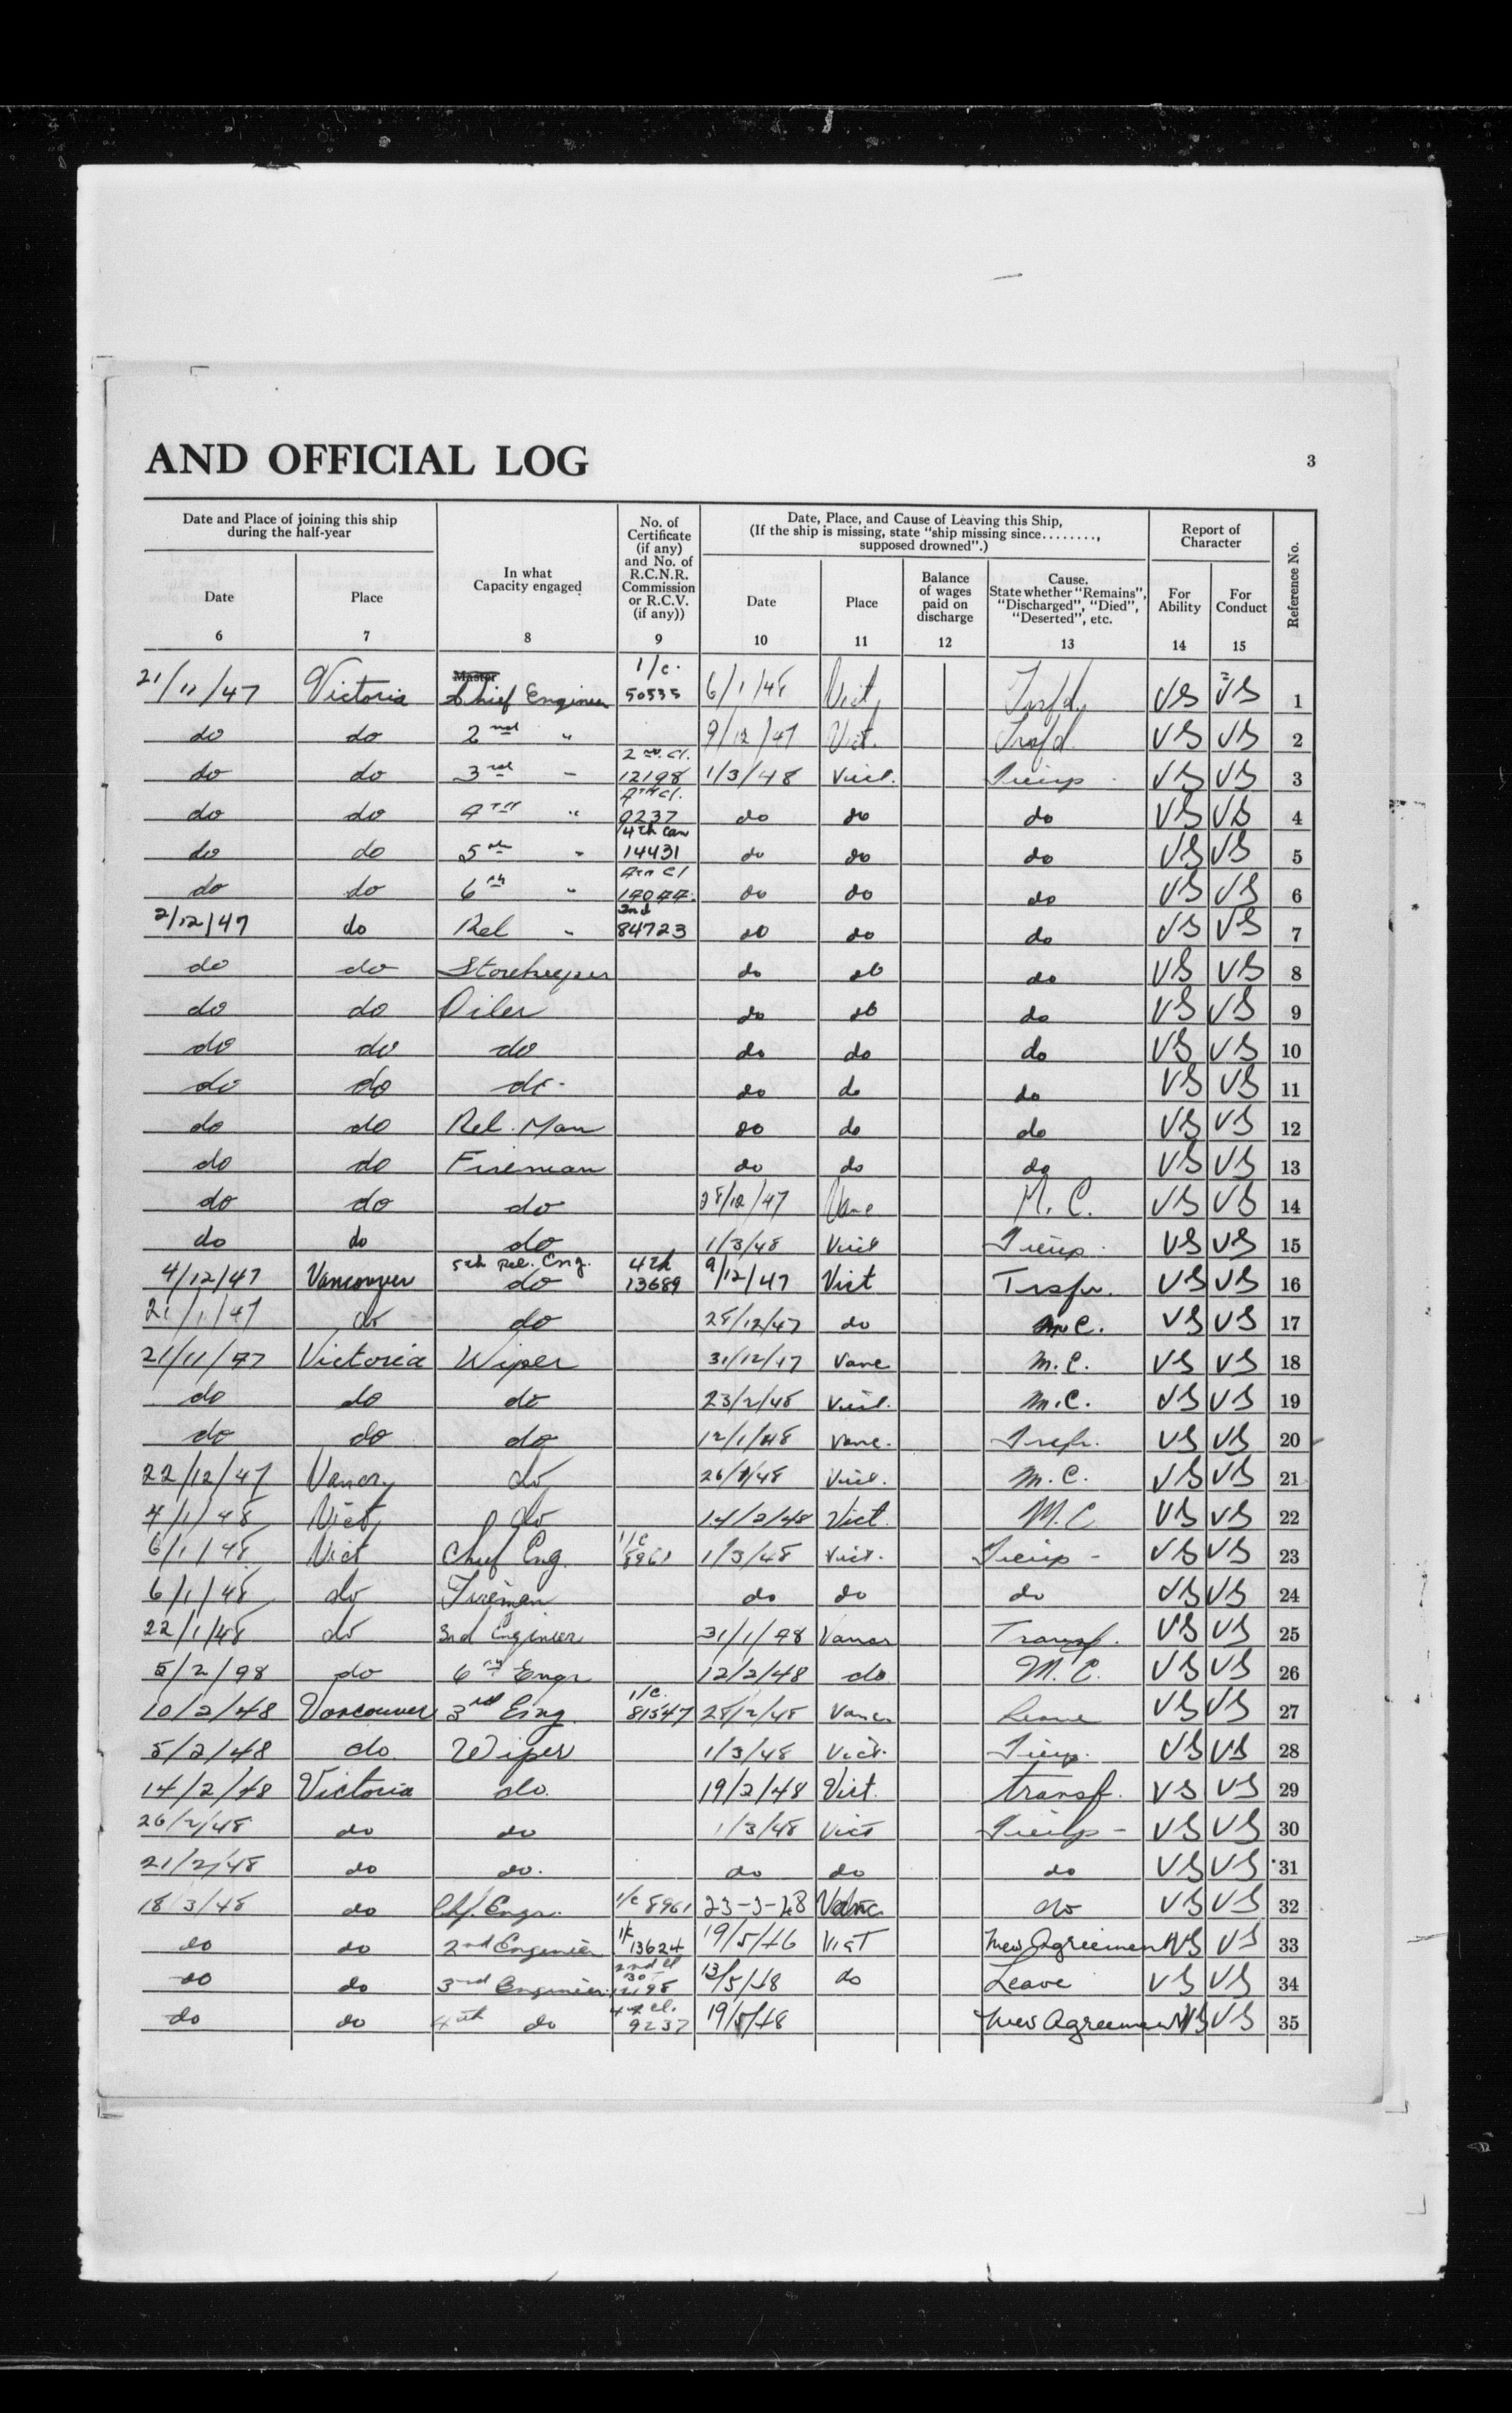 AND OFFICIAL LOG 3
Date and Place of joining this ship during the half-year
In what Capacity engaged
No. of Certificate (if any) and No. of R.C.N.R. Commission or R.C.V. (if any))
Date, Place, and Cause of Leaving this Ship, (If the ship is missing, state "ship missing since........, supposed drowned".)
Report of Character
Reference No.
Date Place Date Place Balance of wages paid on discharge Cause. State whether "Remains", "Discharged", "Died", "Deserted", etc. For Ability For Conduct
6 7 8 9 10 11 12 13 14 15
21/11/47 Victoria Master Chief Engineer 1/c. 50535 6/1/48 Vict VS VS 1
do do 2nd " 9/12/47 Vict. VS VS 2
do do 3rd - 2nd Cl. 12198 1/3/48 Vict. VS VS 3
do do 4th " 4th Cl. 9237 do do do VS VS 4
do do 5th - 4th Can 14431 do do do VS VS 5
do do 6th " 4th Cl do do do VS VS 6
2/12/47 do Rel - 2nd 84723 do do do VS VS 7
do do Storekeeper do do do VS VS 8
do do Oiler do do do VS VS 9
do do do do do do VS VS 10
do do do- do do do VS VS 11
do do Rel. Man do do do VS VS 12
do do Fireman do do do VS VS 13
do do do 28/12/47 Vanc M.C. VS VS 14
do do do 1/3/48 Vict VS VS 15
4/12/47 Vancouver 5th Rel. Eng. do 4th 13689 9/12/47 Vict Trsfr. VS VS 16
21/1/47 do do 28/12/47 do M.C. VS VS 17
21/11/47 Victoria Wiper 31/12/47 Vanc M.C. VS VS 18
do do do 23/2/48 Vict. M.C. VS VS 19
do do do 12/1/48 Vanc. Trsfr. VS VS 20
22/12/47 Vancr do 26/1/48 Vict. M.C. VS VS 21
7/1/48 Vict do 14/2/48 Vict. M.C. VS VS 22
6/1/48 Vict Chief Eng. 1/c 8961 1/3/48 Vict. VS VS 23
6/1/48 do Fireman do do do VS VS 24
22/1/48 do 3rd Engineer 31/1/48 Vancr Transf. VS VS 25
5/2/48 do 6th Engr 12/2/48 do M.C. VS VS 26
10/2/48 Vancouver 3rd Eng. 1/c. 81547 28/2/48 Vancr Leave VS VS 27
5/2/48 do. Wiper 1/3/48 Vict. VS VS 28
14/2/48 Victoria do. 19/2/48 Vict. Transf. VS VS 29
26/2/48 do do 1/3/48 Vict VS VS 30
21/2/48 do do. do do do VS VS 31
18/3/48 do Ch. Engr. 1/c 8961 23-3-48 Vanc do VS VS 32
do do 2nd Engineer 1/c 13624 19/5/48 Vict New Agreement VS VS 33
do do 3rd Engineer 2nd Cl 12198 13/5/48 do Leave VS VS 34
do do 4th do 4th Cl. 9237 19/5/48 New Agreement VS VS 35